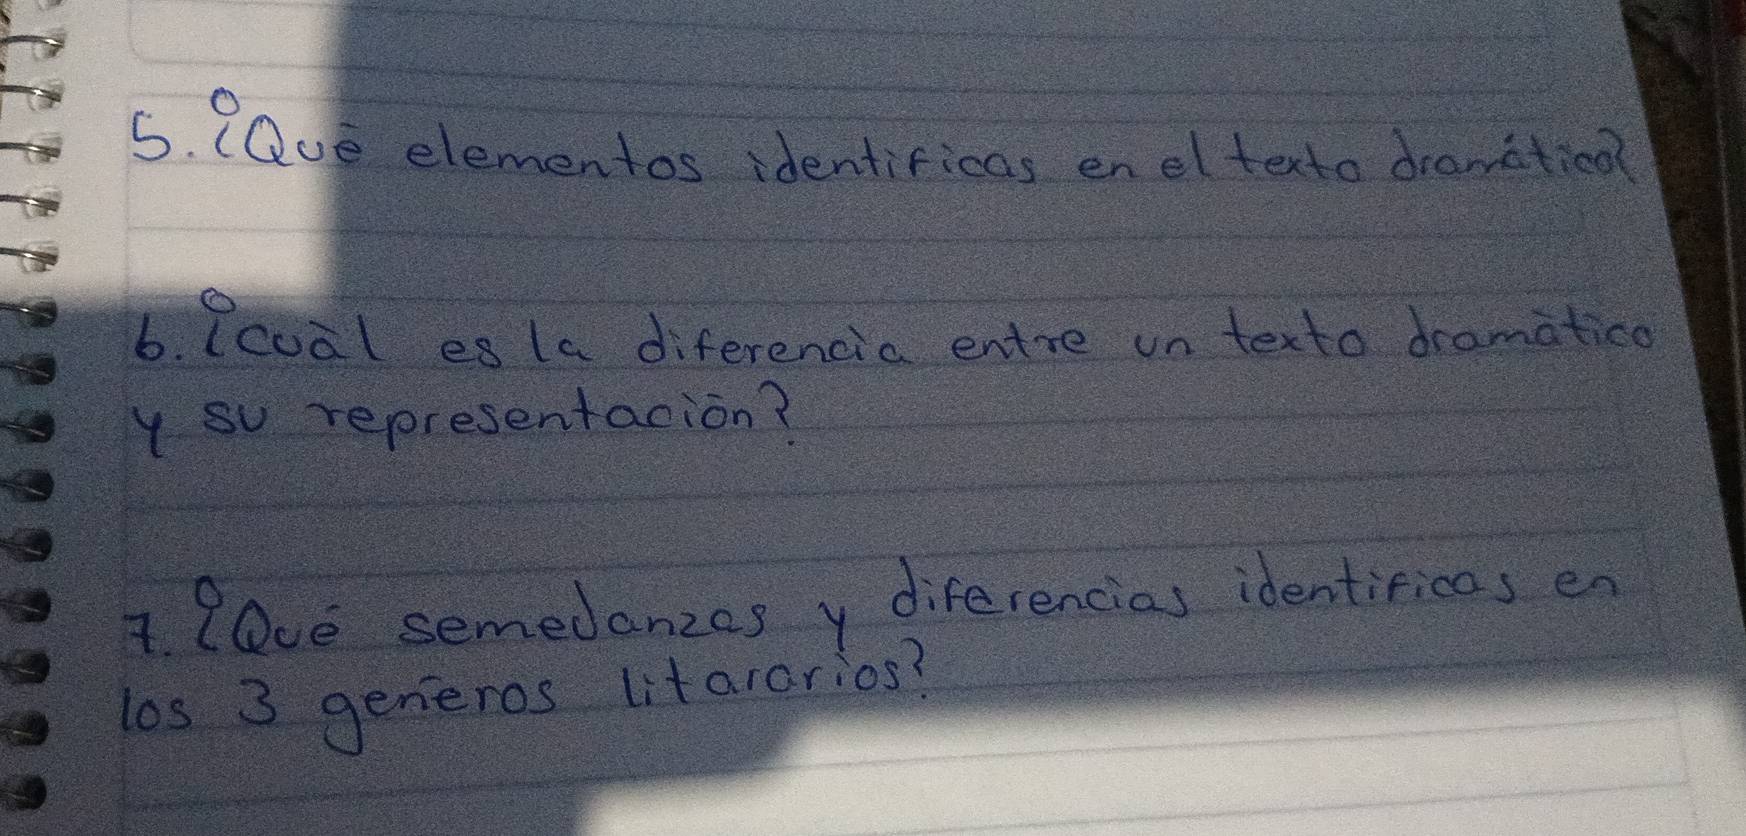 5. ¿Què elementos identificas en el texto dramático?
6. ¿cuàl es la diferencia entre un texto dramàtico
y su representaciòn?
7. ¿Què semejanzas y diferencias identificas en
los 3 generos litararios?